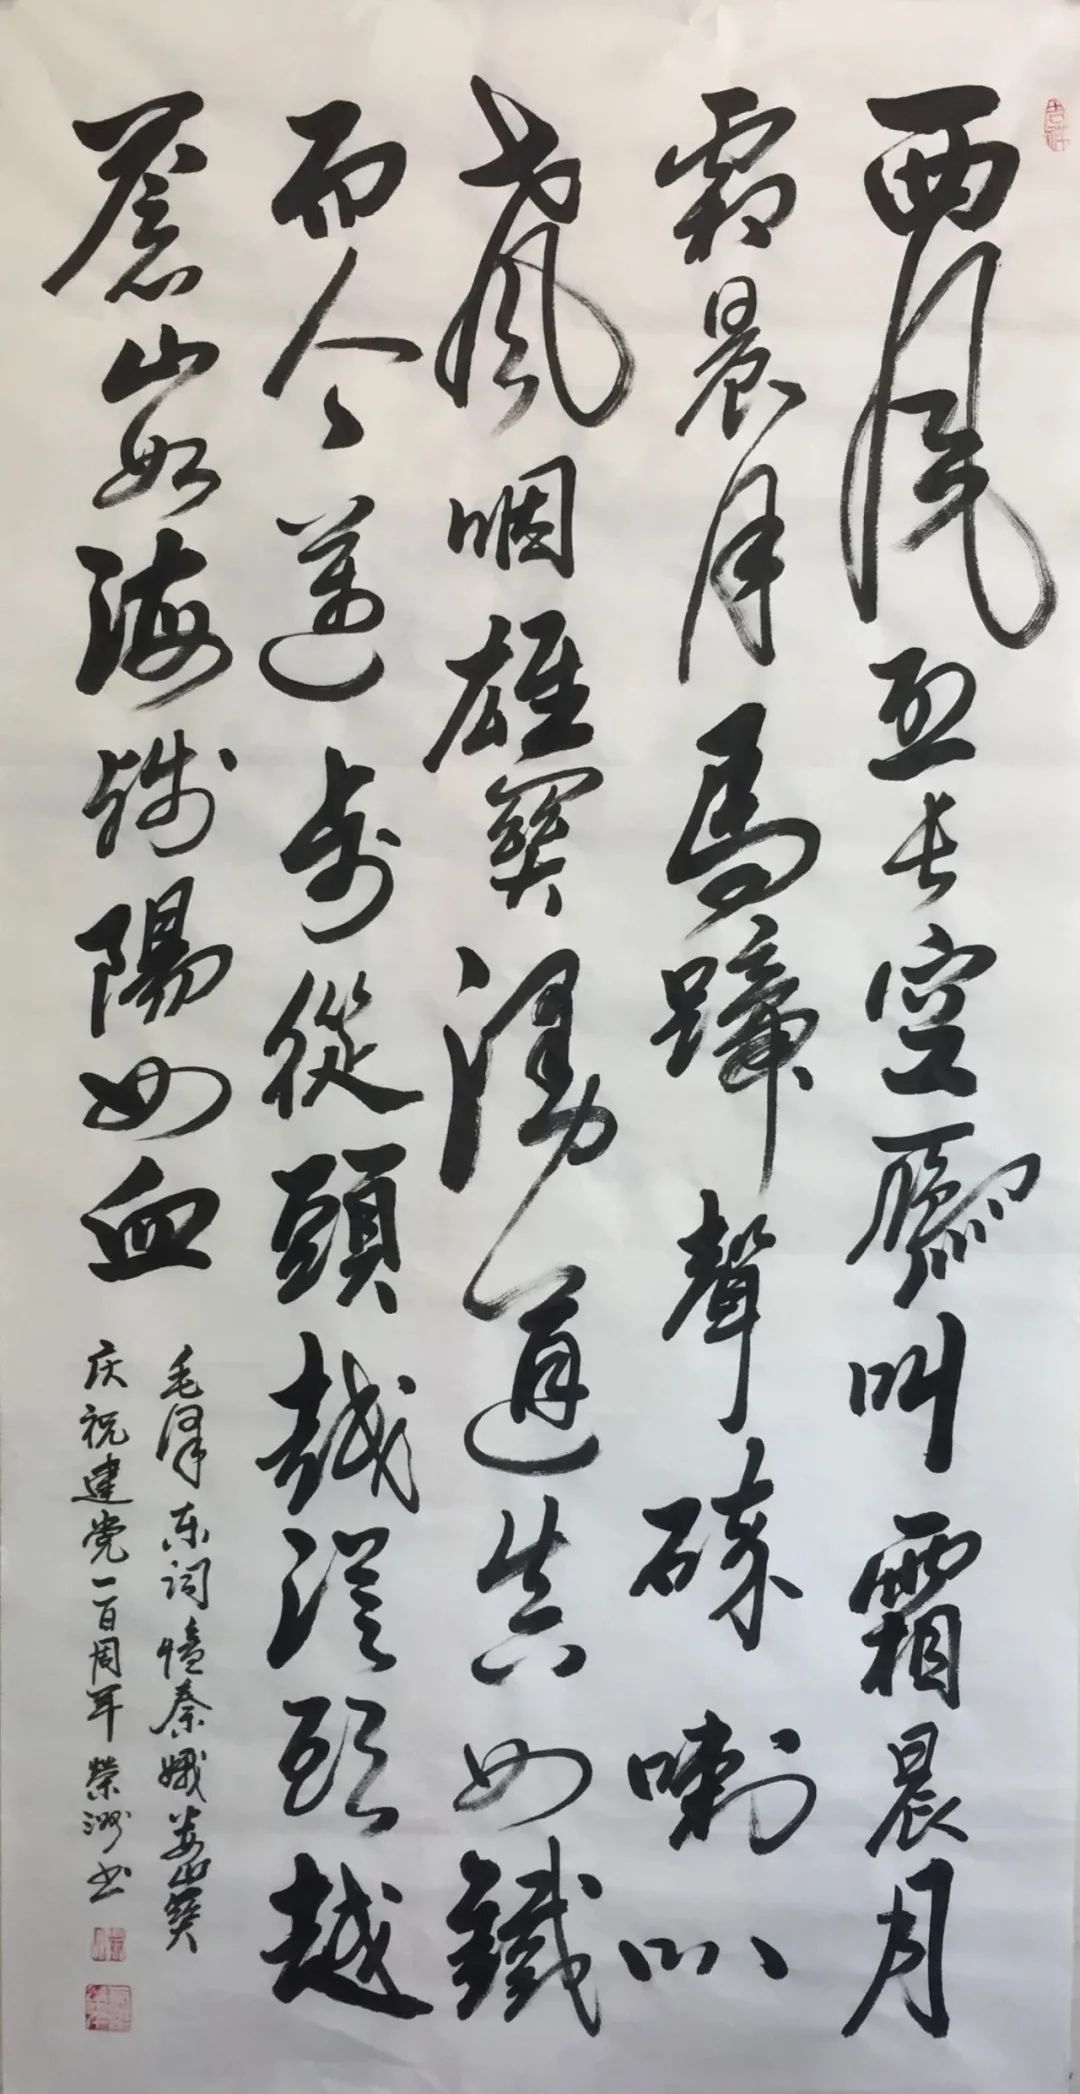 西風烈長空雁叫霜晨月
霜晨月馬蹄聲碎喇叭
聲咽雄關漫道真如鐵
而今邁步從頭越從頭越
蒼山如海殘陽如血
毛泽东词憶秦娥娄山關
庆祝建党一百周年榮洲书